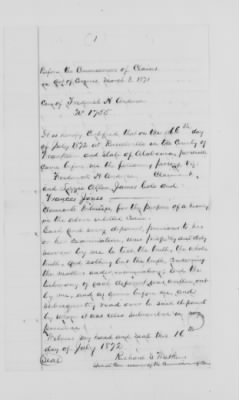 (1
Before the Commissioners of Claims
Act of Congress March 3, 1871
Case of Frederick H Anderson
No 1755
It is hereby Certified that on the 16th day
of July 1872 at Russellville in the County of
Franklin and State of Alabama, personally
came before me the following persons viz:
Frederick H Anderson Claimant,
and James Cole and
Frances Jones
Claimants Witnesses, for the purpose of a hearing
in the above entitled Case.
Each and every deponent previous to his
or her examination, was properly and duly
sworn by me to tell the truth, the whole
truth, and nothing but the truth, concerning
the matters under examination; and the
testimony of each deponent was written out
by me, and as given before me, and
subsequently read over to said deponent
by whom it was also subscribed in my
presence.
Witness my hand and seal this 16th
day of July 1872
Seal Richard